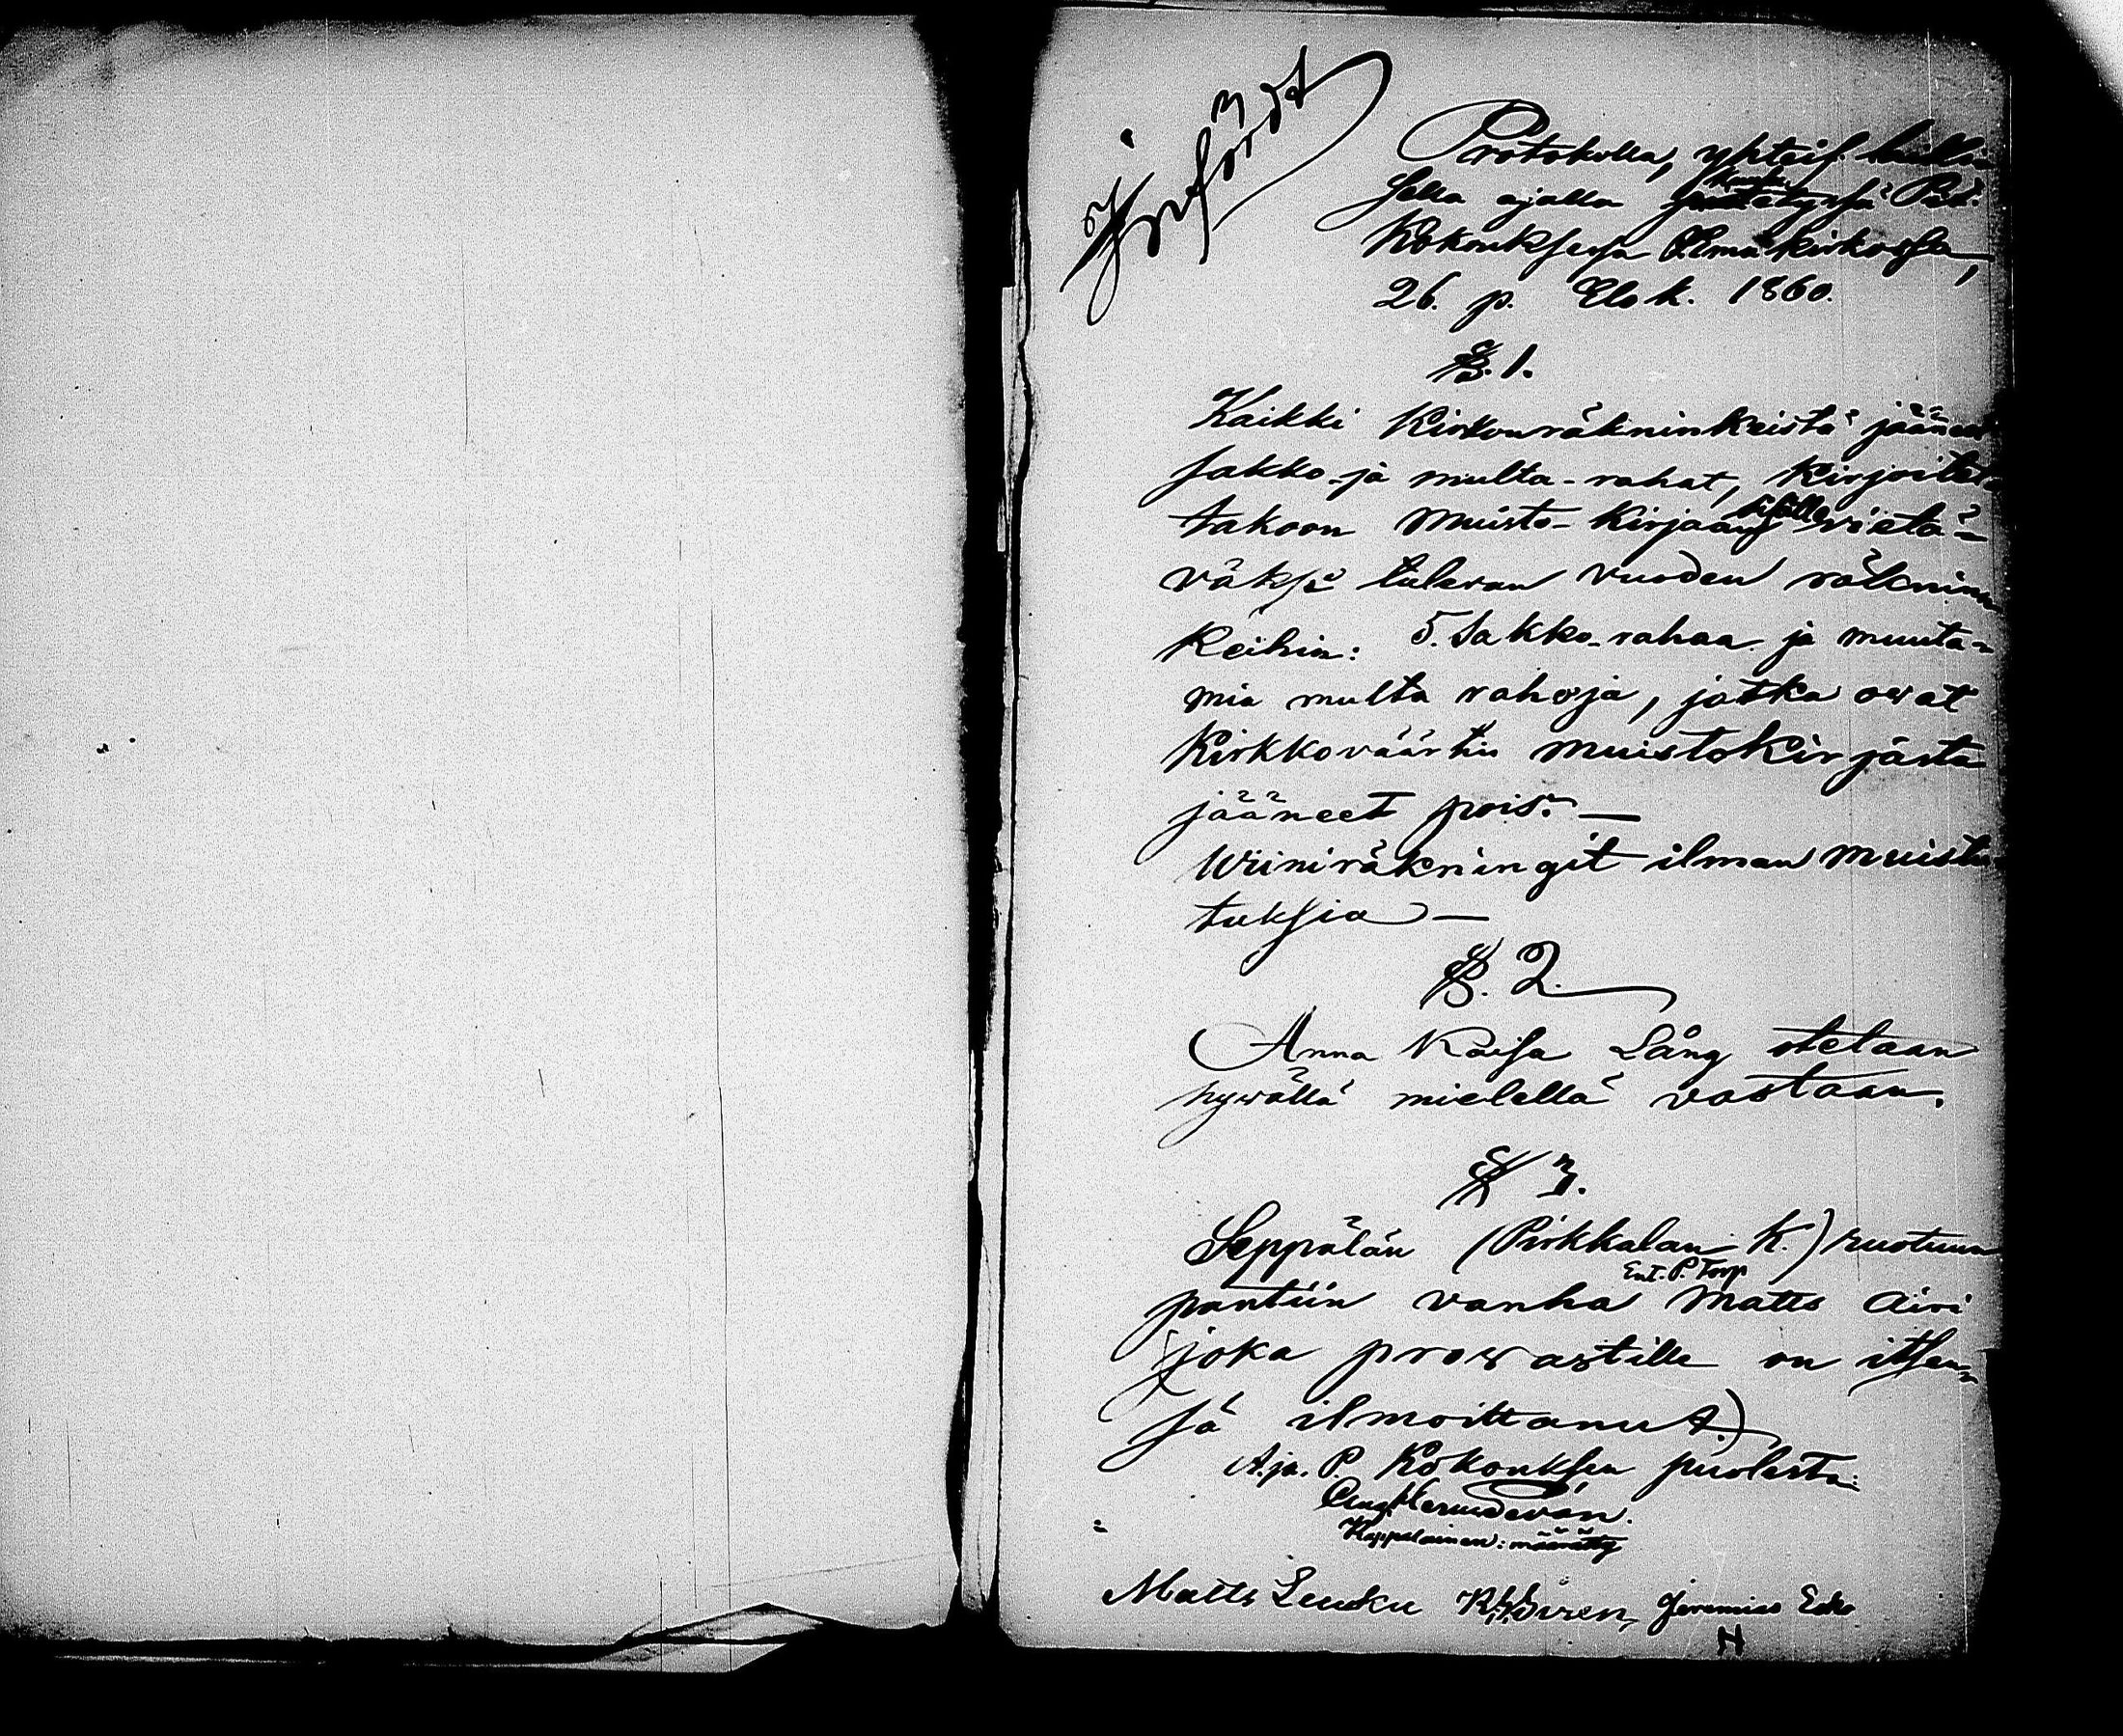 Infördt
Protokolla, yhteis. luilli
sella ajalla Pit.
Kokouksessa kirkossa,
26. p. Elok. 1860.
§. 1.
Kaikki Kirkonräkninkeistä jääneet
sakko- ja multa-rahat, Kirjoitet
takoon Muisto-Kirjaan vietä=
väksi tulevan vuoden räknin
keihin: 5. Sakko-rahaa ja muuta=
mia multa rahoja, jotka owat
Kirkkoväärtin muistokirjasta
jääneet pois. —
Wiiniräkningit ilman muistu
tuksia —
§. 2.
Anna Kaisa Lång otetaan
hywällä mielellä vastaan.
§ 3.
Seppälän (Pirkkalan K.) ruotuun
Ent. P. Torp
pantiin vanha Matts Airi
(joka prowastille on itsen=
sä ilmoittanut.)
A.ja. P. Kokouksen puolesta:
Kappalainen: määrätty
Matts Leuku Sirén, Jeremias Esko